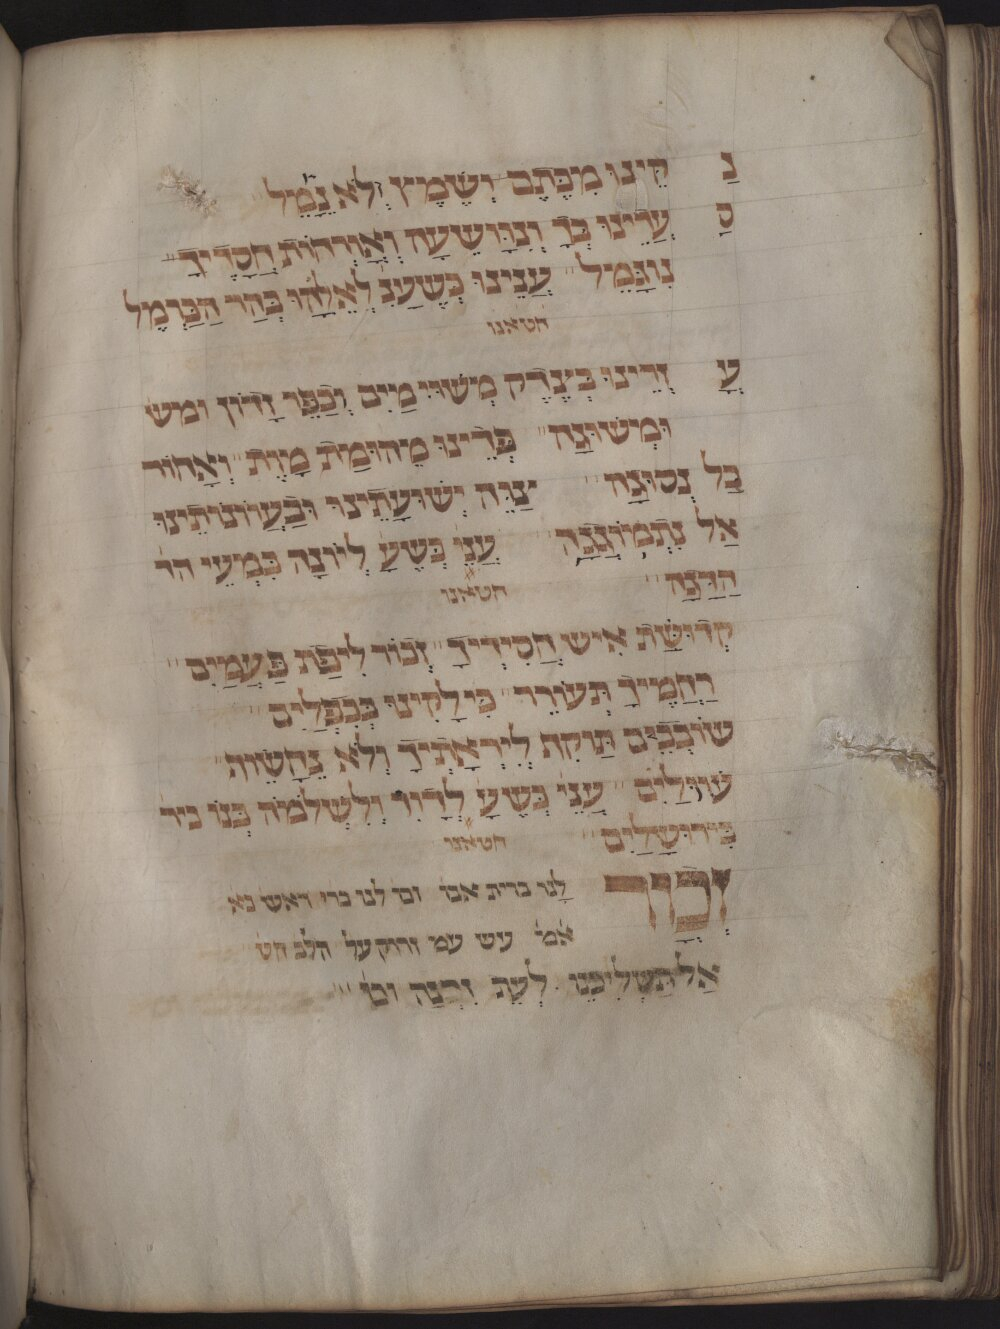 נַ קֵינוּ מִכֶּתֶם וְשֶׁמֶץ וְלֹא נֵמַל
סְ עָדֵינוּ כְּךָ וְנִוָּושֵׁעָה וְאָוֹרְחוֹת חֲסָדֶיךָ
נִוגָּמֵל עֲנֵינוּ כְּשֶׁעָנִ לְאֵלִיָּהוּ בְּהַר הַכַּרְמֶל
חטאנו
עָ וְדֵינוּ בְּצֶדֶק מְשׁוּיִ מַיִם וְכַפֵּר זָדוֹן ומש
וּמְשׁוּגָה פְּדֵינוּ מִמְהוּמַת מָוֶת וְאָחוֹר
בַל נְסוּגָה צַוֵּה יְשׁוּעָתֵינוּ וּבַעֲוֹנוֹתֵינוּ
אַל נִתְמוֹגְגָה עֲנֵנ כְּשֶׁעָ לְיוֹנָה בִּמְעֵי הד
הַדָּגָה
חטאנו
קְדוּשַּׁת אִישׁ חֲסִידֶיךָ זְכוֹר לִיפַת פַּעֲמַיִם
רַחֲמֶיךָ תְּעוֹרֵר כִּי לָקִינוּ בְּכִפְלַיִם
שׁוֹבְבֵים תִּוקַּח לְיִרְאָתֶיךָ וְלֹא נֵחָשֵׂוֹף
שׁוּלַיִם עֲנֵי כְּשֶׁעָ לְדָוִד וְלִשְׁלֹמֹה בְּנוֹ ביר
בִּירוּשָׁלַיִם
חטאנו
זְכָוֹר לָנוּ ברית אבו וכו לנו ברי ראש נא
אמ׳ עש עמי זרוק על הלב חט׳
אַל תַּשְׁלִיכֵנוּ לְעֵת זִקְנָה וכו׳